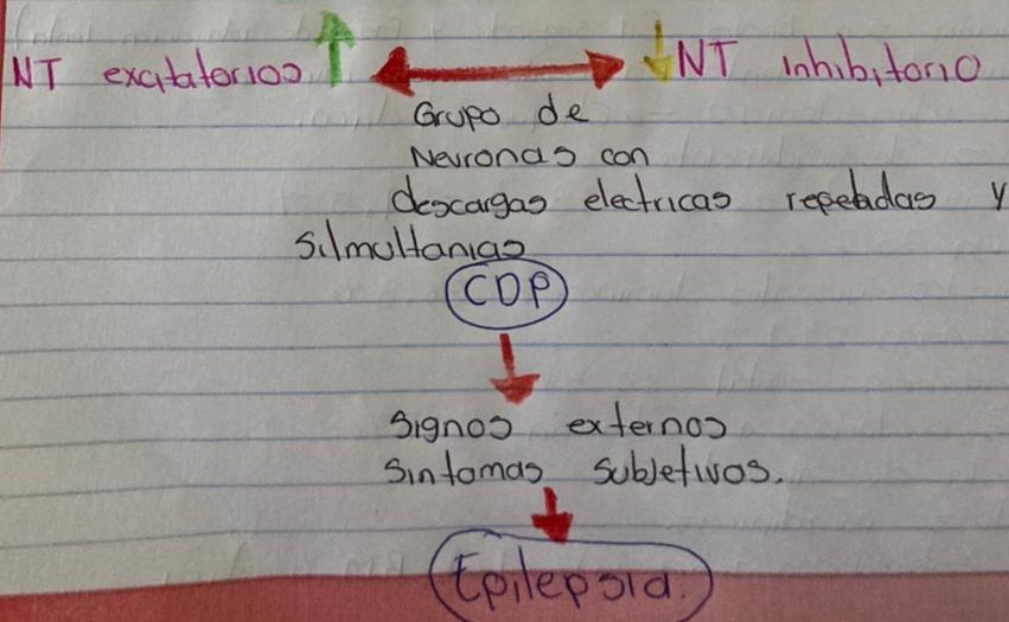 NT excitatorios ↑ ↔ ↓ NT inhibitorio
Grupo de
Neuronas con
descargas electricas repetidas y
Silmultanias
CDP
Signos externos
Sintomas subjetivos.
Epilepsia.